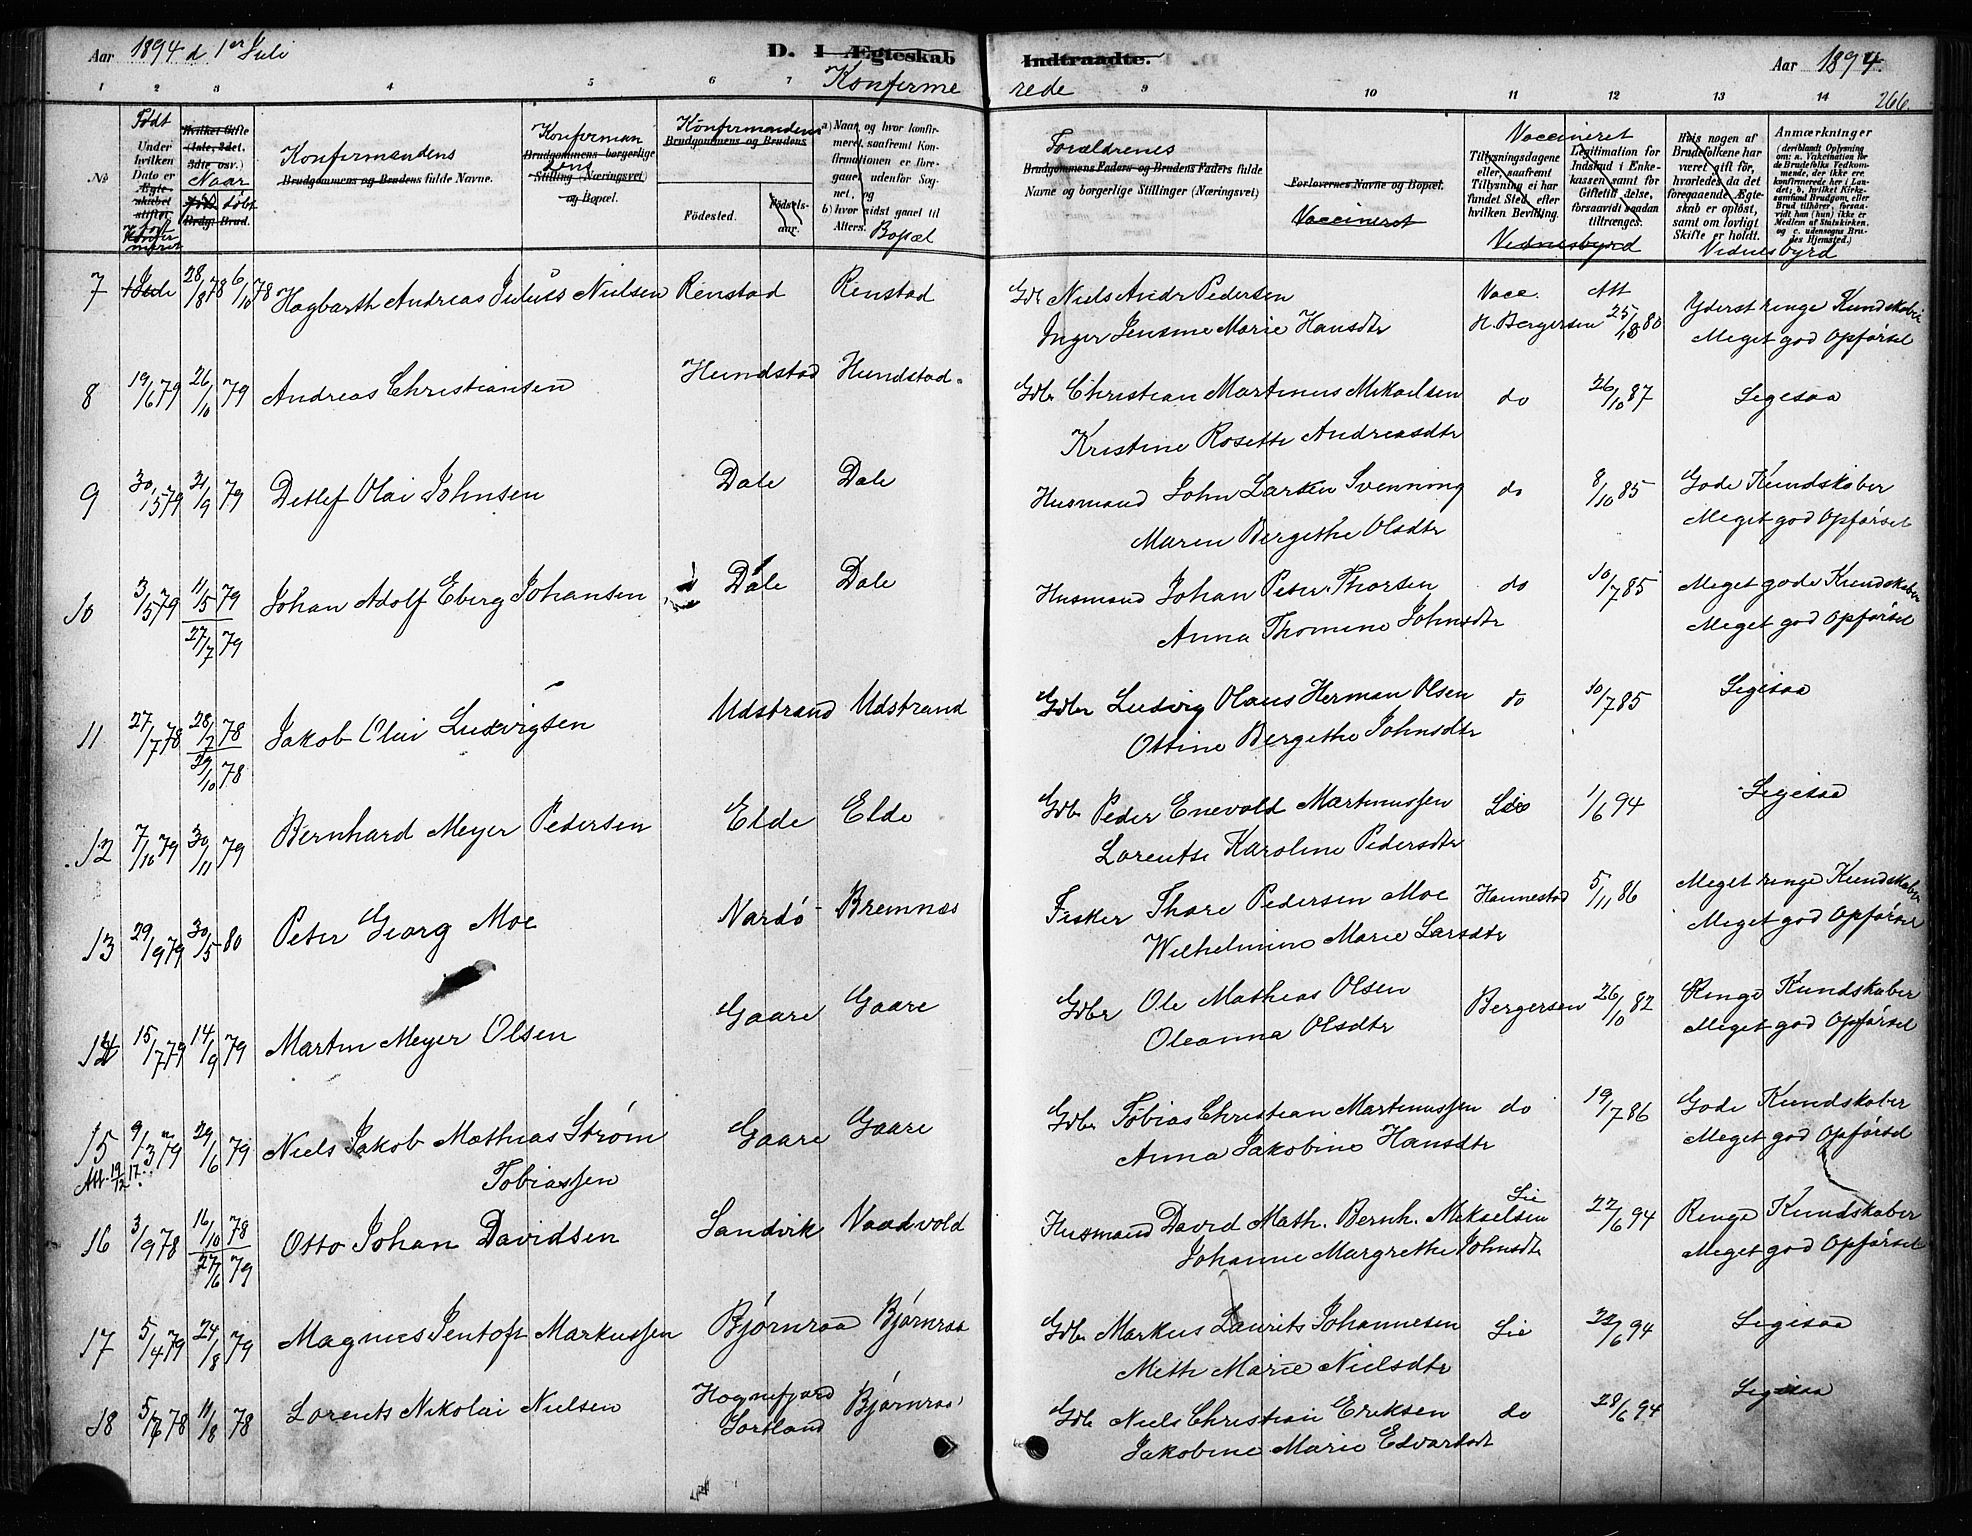 Aar 1894 d 1er Juli
D. I Ægteskab
Konferme
Indtraadte.
rede
Aar 1894.
266.
1 2 3 4 5 6 7 9 10 11 12 13 14
No
Født
Under hvilken Dato er
Naar
døbt
Konfirmandens
Brudgommens og Brudens fulde Navne.
Konfirmandens
Brudgommens borgerlige Stilling (Næringsvei) og Bopæl.
Konfirmandens
Brudgommens og Brudens
Fødested.
Fødselsaar.
a) Naar og hvor konfirmeret, saafremt Konfirmationen er foregaaet udenfor Sognet, og
b) hvor sidst gaaet til Alters.
Bopæl
Forældrenes
Brudgommens Faders og Brudens Faders fulde Navne og borgerlige Stillinger (Næringsvei)
Forlovernes Navne og Bopæl.
Vaccineret
Vaccineret
Tillysningsdagene eller, saafremt Tillysning ei har fundet Sted, efter hvilken Bevilling.
Legitimation for Indskud i Enkekassen samt for Giftetilladelse, forsaavidt saadan tiltrænges.
Vidnesbyrd
Hvis nogen af Brudefolkene har været gift før, hvorledes da det foregaaende Ægteskab er opløst, samt om lovligt Skifte er holdt.
Anmærkninger
Vidnesbyrd
7 1 Juli 28/8 78 6/10 78 Hagbarth Andreas Julius Nielsen Renstad Renstad Gdb Niels Andr Pedersen Vacc. Att Yderst ringe Kundskaber
Inger Jensine Marie Hansdtr H. Bergersen 25/10 80 Meget god Opførsel
8 19/6 79 26/10 79 Andreas Christiansen Hundstad Hundstad Gdbr Christian Martinus Mikaelsen do 26/10 87 Ligesaa
Kristine Rosette Andreasdtr
9 30/5 79 21/9 79 Detlef Olai Johnsen Dale Dale Husmand John Larsen Svenning do 8/10 85 Gode Kundskaber
Maren Bergethe Olsdtr Meget god Opførsel
10 3/5 79 11/5 79 Johan Adolf Eberg Johansen Dale Dale Husmand Johan Peter Thorsen do 10/7 85 Meget gode Kundskaber
27/7 79 Anna Thomine Johnsdtr Meget god Opførsel
11 27/7 78 28/7 78 Jakob Olai Ludvigsen Udstrand Udstrand Gdbr Ludvig Olaus Herman Olsen do 10/7 85 Ligesaa
/10 78 Ottine Bergethe Johnsdtr
12 7/10 79 30/11 79 Bernhard Meyer Pedersen Elde Elde Gdb Peder Enevold Martinussen Lie 1/6 94 Ligesaa
Lorentse Karoline Pedersdtr
13 29/9 79 30/5 80 Peter Georg Moe Nardö Bremnes Fisker Thore Pedersen Moe Hannestad 5/11 86 Meget ringe Kundskaber
Wilhelmine Marie Larsdtr Meget god Opførsel
14 15/7 79 14/9 79 Martin Meyer Olsen Gaare Gaare Gdbr Ole Mathias Olsen Bergersen 26/10 82 Ringe Kundskaber
Oleanna Olsdtr Meget god Opførsel
15 9/3 79 29/6 79 Niels Jakob Mathias Strøm Gaare Gaare Gdbr Tobias Christian Martinussen do 19/7 86 Gode Kundskaber
Att. 19/12 17. Tobiassen Anna Jakobine Hansdtr Meget god Opførsel
16 3/9 78 16/10 78 Otto Johan Davidsen Sandvik Vaadvold Husmand David Math. Bernh. Mikaelsen Lie 22/6 94 Ringe Kundskaber
27/6 79 Johanne Margrethe Johnsdtr Meget god Opførsel
17 5/4 79 24/8 79 Magnus Jentoft Markussen Bjørnraa Bjørnraa Gdbr Markus Laurits Johannesen Lie 22/6 94 Ligesaa
Meth Marie Nielsdtr
18 78 11/8 78 Lorents Nikolai Nielsen Hognfjord Sortland Bjørnraa Gdb Niels Christian Eriksen do 28/6 94 Ligesaa
Jakobine Marie Edvartsdt